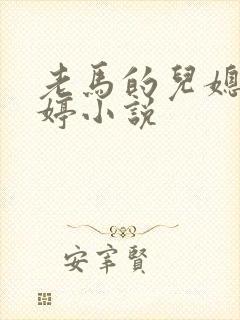 老馬的兒媳
婷小說
安宰賢